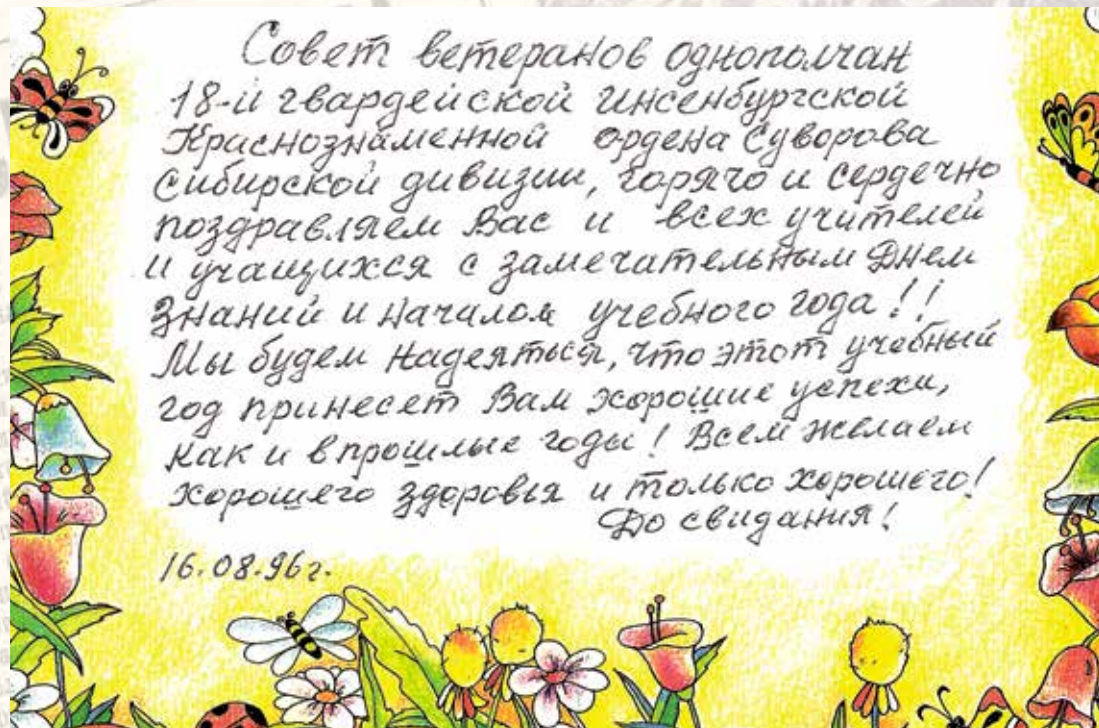 Совет ветеранов однополчан
18-й гвардейской Инсенбургской
Краснознаменной ордена Суворова
Сибирской дивизии, горячо и сердечно
поздравляем Вас и всех учителей
и учащихся с замечательным Днем
Знаний и началом учебного года!!
Мы будем надеяться, что этот учебный
год принесет Вам хорошие успехи,
как и в прошлые годы! Всем желаем
хорошего здоровья и только хорошего!
До свидания!
16.08.96г.